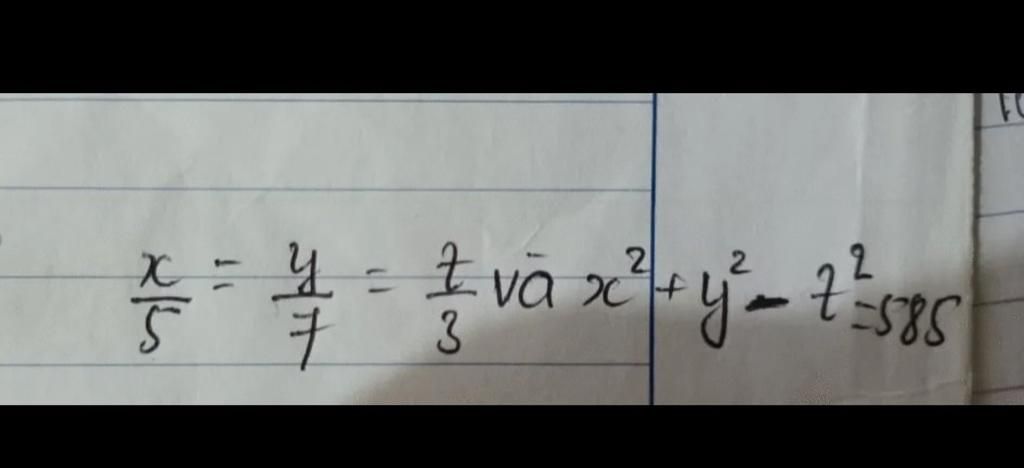 x/5 = y/7 = z/3 và x² + y² - z² = 585